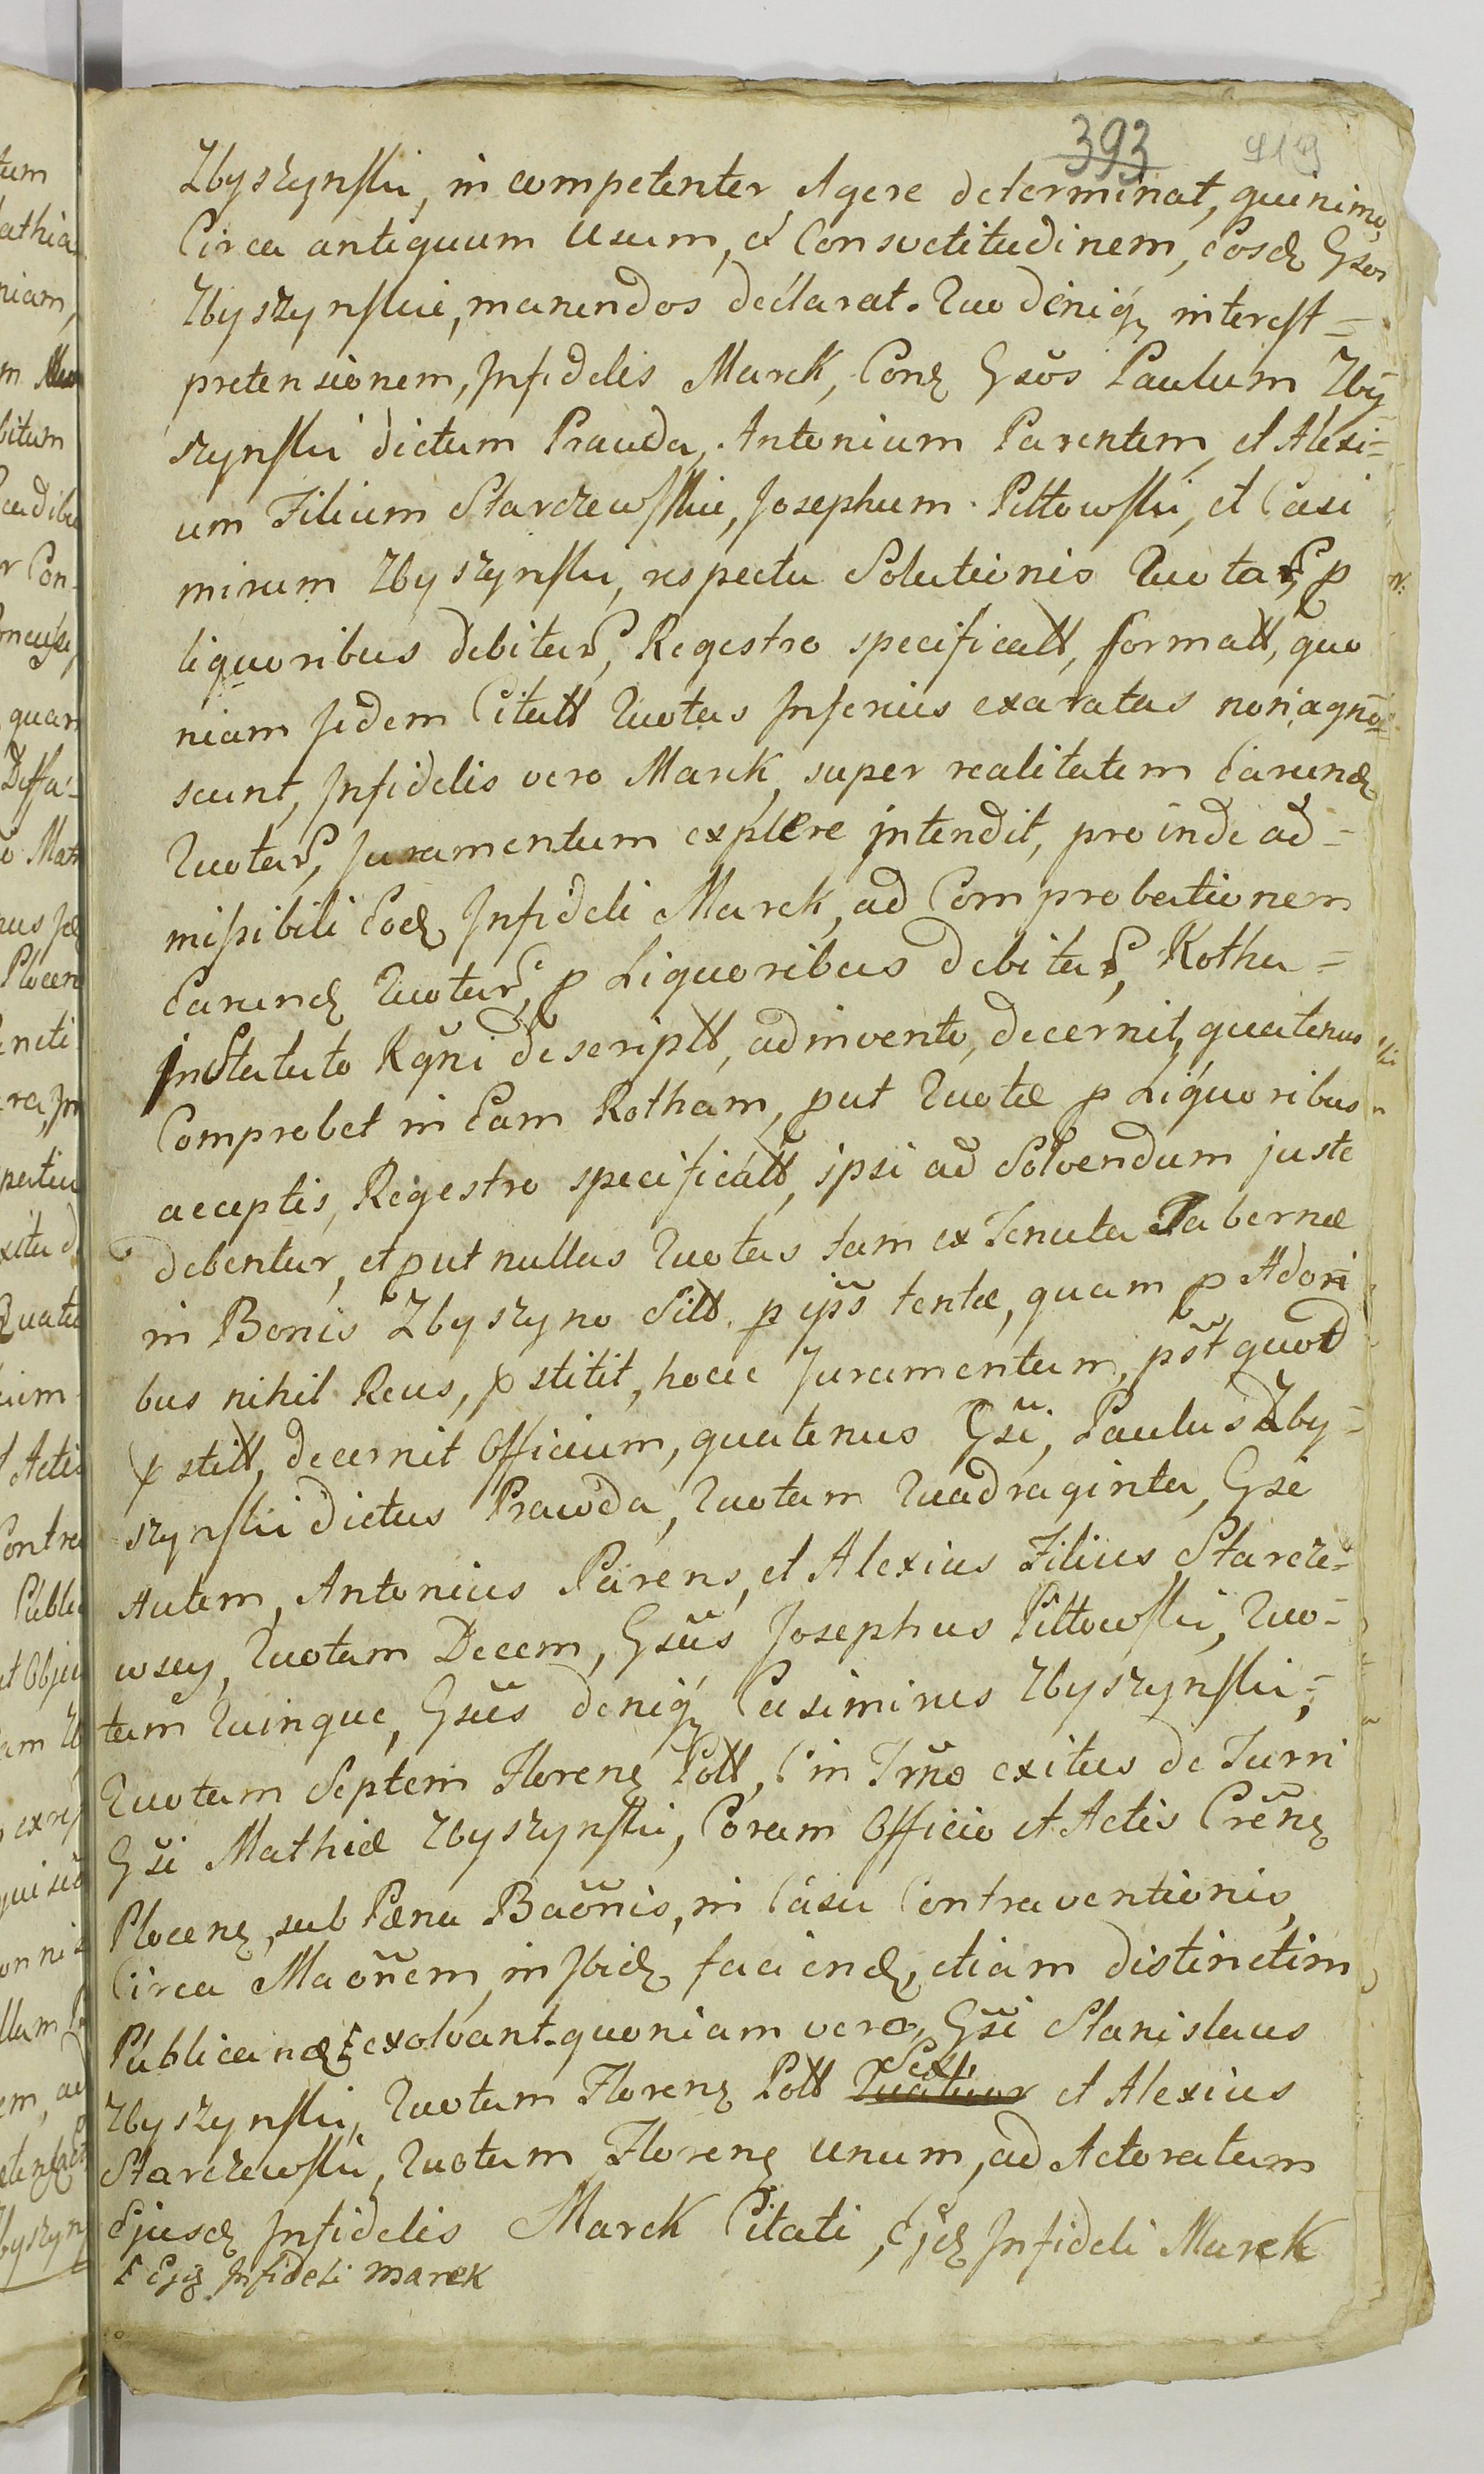 393 419
Zbyszynskii, in competenter Agere determinat, quinimo,
Circa antiquum Usum, et Consvetitudinem, Eosd Gsos
Zbyszynskie, manendos declarat. Quo deniq interest=
pretensionem, Infidelis Marek, Conz Gsos Paulum Zby=
szynskii dictum Prawda, Antonium Parentem, et Alexi=
um Filium Starczewskie, Josephum Pittowskii, et Casi
mirum Zbyszynskii, respectu Solutionis Quotar, p
liquoribus debitar, Regestro specificatt, formatt, quo
niam Jidem Citatt Quotas Inferius exaratas non agno=
scunt, Infidelis vero Marek, super realitatem Earund
Quotar, Juramentum explere intendit, pro inde ad=
missibili Eod Infideli Marek, ad Comprobationem
Earund Quotar, p Liquoribus debitar, Rotha=
in Statuto Rgni descriptt, adinvento, decernit, quatenus
Comprobet in Eam Rotham, put Quotæ p Liquoribus
acceptis, Regestro specificatt, ipsi ad Solvendum juste
debentur, et put nullas Quotas tam ex Tenuta Tabernæ
in Bonis Zbyszyno Sitt. p ipss tentæ, quam p Adori
bus nihil Reus, pstitit, hocce Juramentum, pst quod
pstitt, decernit Officium, quatenus Gsi, Paulus Zby=
szynskii dictus Prawda, Quotam Quadraginta, Gsi
Autem, Antonius Parens, et Alexius Filius Starcze=
wscy, Quotam Decem, Gsus Josephus Pittowskii, Quo=
tam Quinque, Gsus deniq Casimirus Zbyszynskii,=
Quotam Septem Florenz Poll, in Trno exitus de Turri
Gsi Mathiæ Zbyszynskii, Coram Officio et Actis Crenz
Plocenz, sub Pæna Baonis, in Casu Contraventionis,
Circa Maonem, in Ibid faciend, etiam distinctim
Publicand exolvant. quoniam vero, Gsi Stanislaus
Sex,
Zbyszynskii, Quotam Florenz Poll Quatuor et Alexius
Starczewskii, Quotam Florenz Unum, ad Actoratum
Ejusd Infidelis Marek Citati, Ejd Infideli Marek
Ejd Infideli Marek